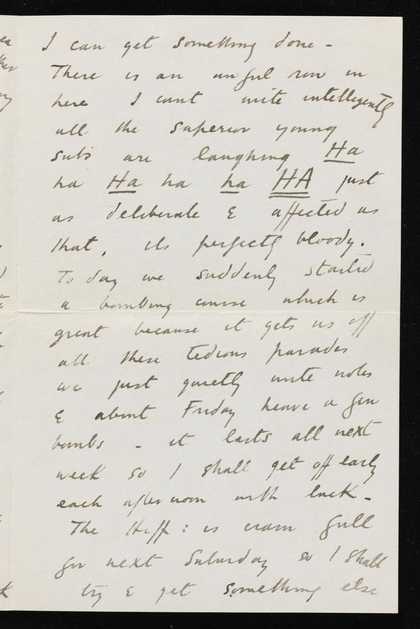 I can get something done -
There is an awful row in
here I cant write intelligently
all the superior young
subs are laughing Ha
ha Ha ha ha HA just
as deliberate & affected as
that, its perfectly bloody.
To day we suddenly started
a bombing course which is
great because it gets us off
all these tedious parades
we just quietly write notes
& about Friday heave a few
bombs - it lasts all next
week so I shall get off early
each afternoon with luck -
The Hipp: is cram full
for next Saturday so I shall
try & get something else